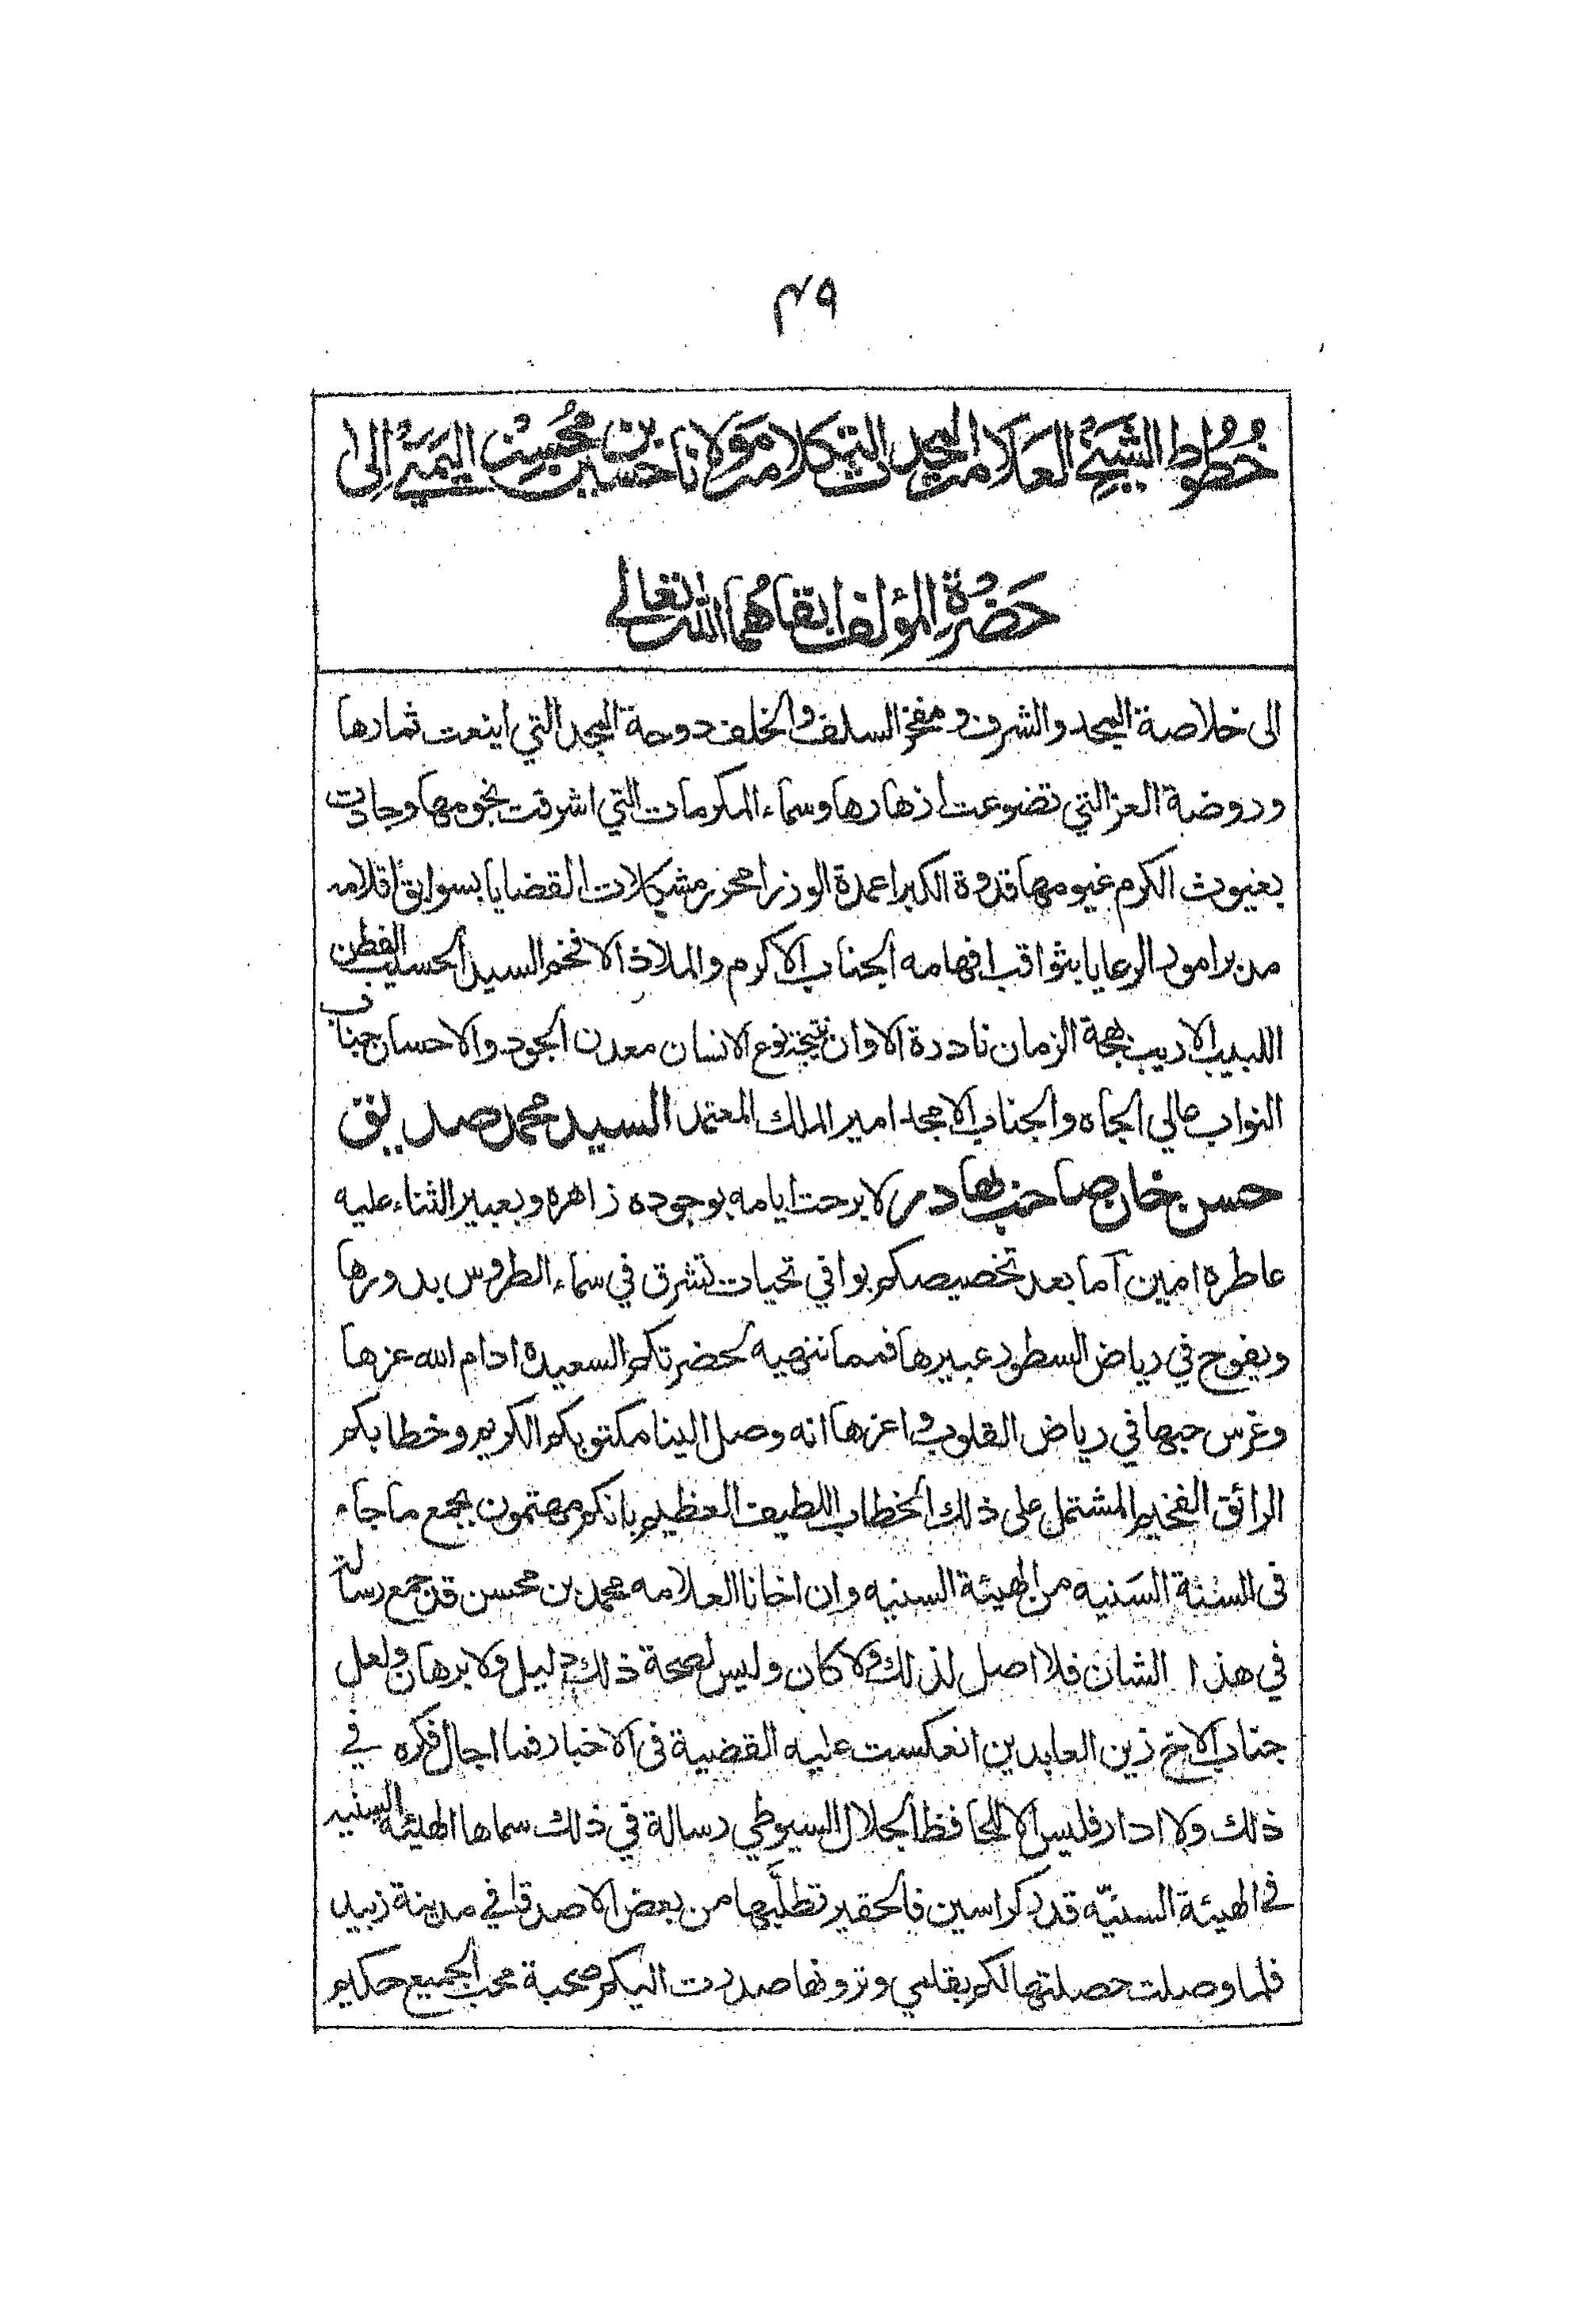 ٤٩
خُطُوط الشيخ العلامة المجد المتكلام مولانا حسين بن محسن اليمني الى
حضرة المؤلف ابقاهما الله تعالى
الى خلاصة المجد والشرف ومفخر السلف والخلف دوحة المجد التي اينعت ثمارها
وروضة العز التي تضوعت ازهارها وسماء المكرمات التي اشرقت نجومها وجادت
بغيوث الكرم غيومها قدوة الكبرا عمدة الوزرا محرر مشكلات القضايا بسوابق اقلامه
مدبر امور الرعايا بثواقب افهامه الجناب الاكرم والملاذ الافخم السيد الحسيب الفطن
اللبيب الاديب بهجة الزمان نادرة الاوان نتيجة نوع الانسان معدن الجود والاحسان جناب
النواب عالي الجاه والجناب الامجد امير الملك المعتمد السيد محمد صديق
حسن خان صاحب بهادر لا برحت ايامه بوجوده زاهره وبعبير الثناء عليه
عاطره امين آما بعد تخصيصكم بوافي تحيات تشرق في سماء الطروس بدورها
ويفوح في رياض السطور عبيرها فمما ننهيه لحضرتكم السعيدة ادام الله عزها
وغرس حبها في رياض القلوب واعزها انه وصل الينا مكتوبكم الكريم وخطابكم
الرائق الفخيم المشتمل على ذلك الخطاب اللطيف العظيم بانكم مهتمون بجمع ما جاء
في السنة السَنيه من الهيئة السنيه وان اخانا العلامه محمد بن محسن قد جمع رسالة
في هذا الشان فلا اصل لذلك ولا كان وليس لصحة ذلك دليل ولا برهان ولعل
جناب الاخ زين العابدين انعكست عليه القضية في الاخبار فما اجال فكره في
ذلك ولا ادار فليس الا للحافظ الجلال السيوطي رسالة في ذلك سماها الهيئة السنيه
في الهيئة السنيّه قدر كراسين فالحقير تطلَّبها من بعض الاصدقا في مدينة زبيد
فلما وصلت حصلتها لكم بقلمي وترونها صدرت اليكم صحبة محب الجميع حكيم